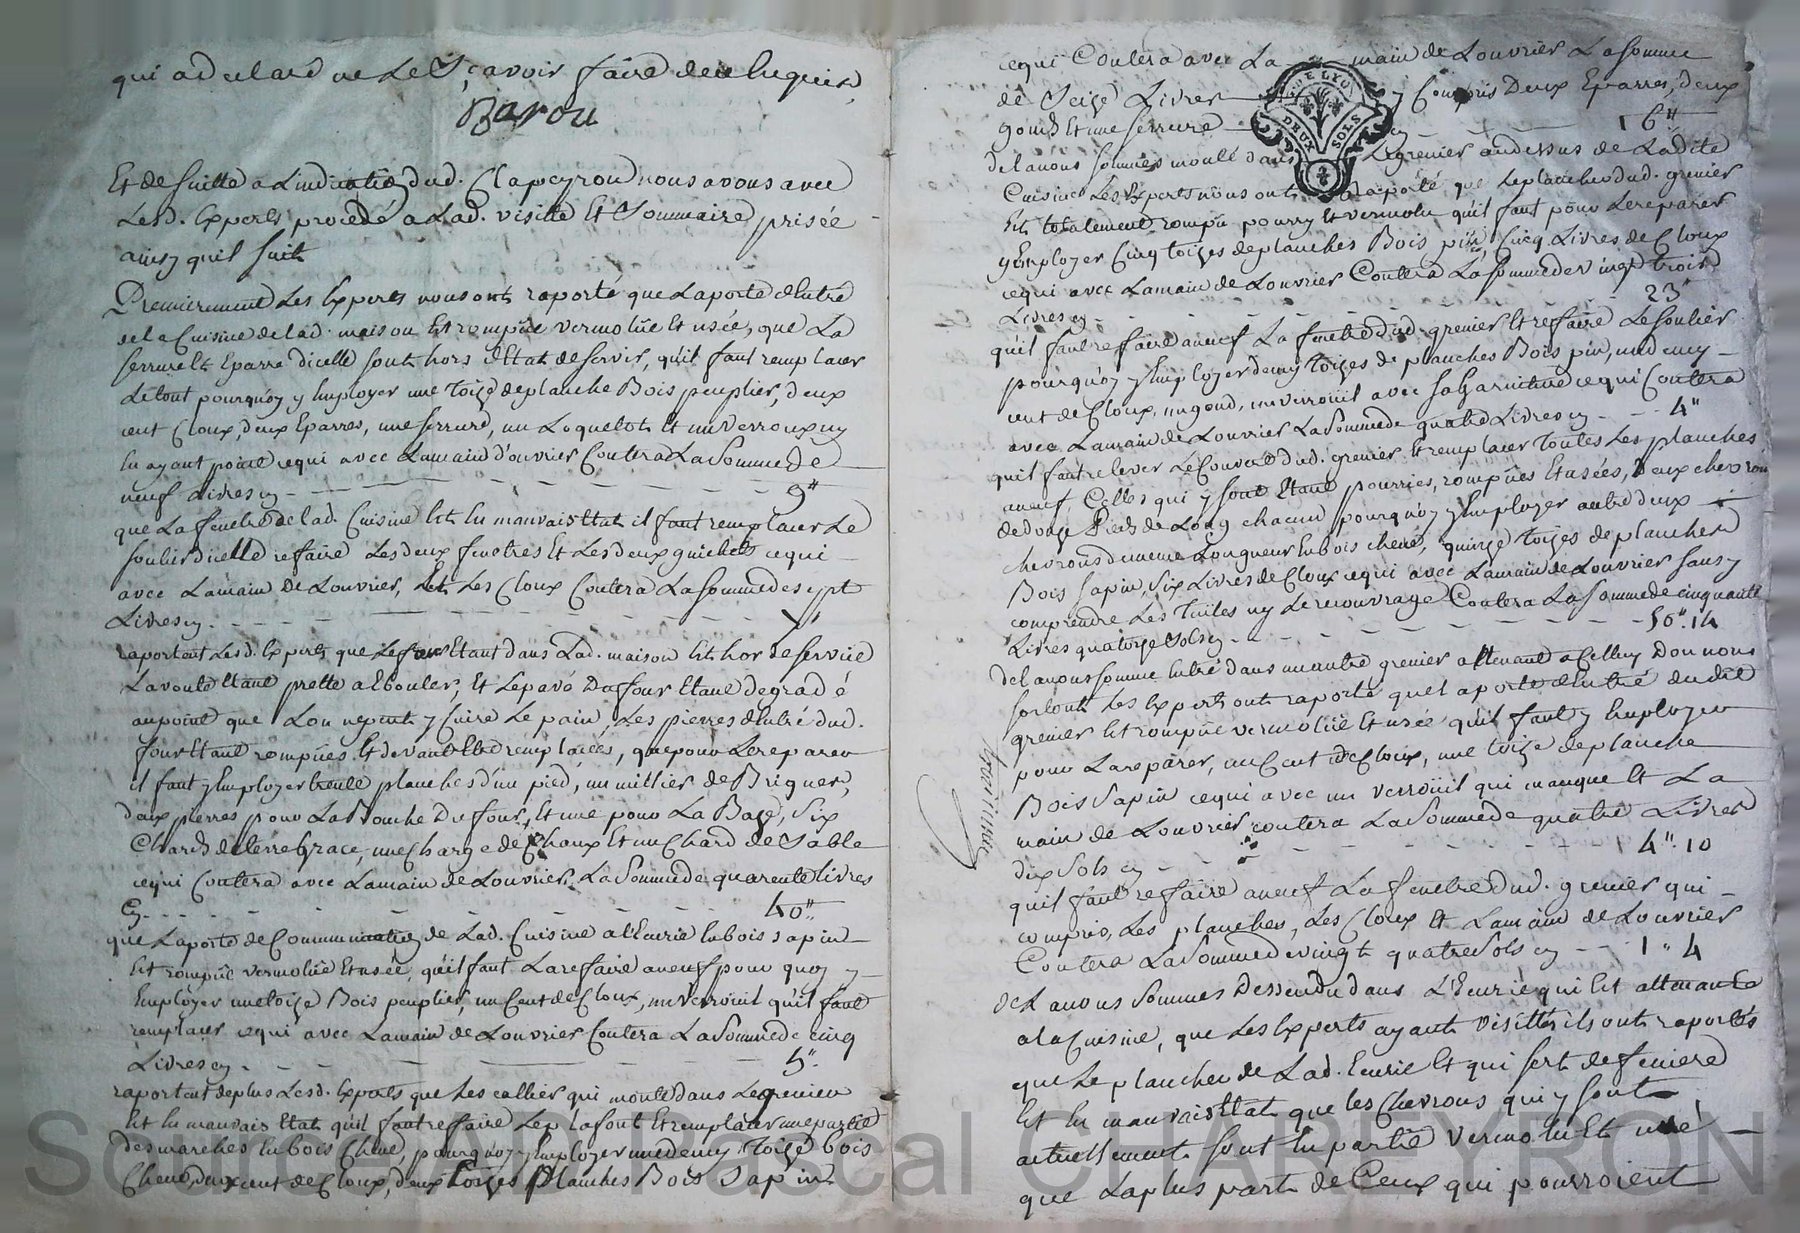 qui a declaré ne le sçavoir faire de ce Enquis
Barou
Et de suitte a Lindication dud. Clapeyron nous avons avec
Lesd. Experts procedé a Lad. visitte Et Sommaire prisée
ainsy quil suit
Premierement Les Experts nous ont raporté que La porte dEntré
de la Cuisine de lad. maison Est rompüe vermolüe Et usée, que La
serrure Et Eparre dicelle sont hors dEtat de servir, qu'il faut remplacer
Le tout pourquoy y Employer une toize de planche Bois peuplier, deux
cent Cloux, deux Eparres, une serrure, un Loquetot Et un Verroux ny
En ayant point cequi avec Lamain d'ouvrier Coutera La Somme de
neuf Livres cy 9"
que La fenetre de lad. Cuisine Est En mauvais Etat il faut remplacer Le
soulier dicelle refaire Les deux fenetres Et Les deux guichets cequi
avec Lamain De Louvrier, Et Les Cloux Coutera La somme de sept
Livres cy 7"
raportent Lesd. Experts que Le four Etant dans Lad. maison Est hor de service
La voute Etant prette a Ebouler, Et Le pavé Du four Etant degradé
au point que Lon ne peut y Cuire Le pain, Les pierres dEntré dud.
four Etant rompües Et devant Etre remplacées, que pour Le reparer
il faut y Employer trente planches d'un pied, un millier de Briques,
deux pierres pour La Bouche Du four, Et une pour La Baze, Six
Chards de terre Grace, une Charge de Chaux Et un Chard de Sable
cequi Coutera avec Lamain de Louvrier La Somme de quarente livres
cy 40"
que La porte de Communication de Lad. Cuisine a lEcurie En bois sapin
Est rompüe vermolüe Et usée, qu'il faut La refaire a neuf pour quoy y
Employer une toize Bois peuplier, un Cent de Cloux, un Verroüil qu'il faut
remplacer cequi avec Lamain de Louvrier Coutera La Somme de cinq
Livres cy 5"
raportent de plus Lesd. Experts que Les callier qui monte dans Le grenier
Est En mauvais Etat qu'il faut refaire Le plafont Et remplacer une partie
des marches En bois Chene, pourquoy y Employer une demy Toize bois
Chene, deux cent de Cloux, deux Toizes planches Bois Sapin
cequi Coutera avec La main de Louvrier La Somme
de Seize Livres y Compris Deux Eparres, deux
gonds Et une serrure 16"
DE LYON
DEUX SOLS
de la nous sommes monté dans Le grenier audessus de Ladite
Cuisine Les Experts nous ont raporté que Le plancher dud. grenier
Est totalement rompu pourry Et vermolu qu'il faut pour Le reparer
y Employer Cinq toizes de planches Bois pin, Cinq Livres de Cloux
cequi avec Lamain de Louvrier Coutera La Somme de vingt trois
Livres cy 23"
qu'il faut refaire a neuf La fenetre dud. grenier Et refaire Le soulier
pourquoy y Employer demy toizes de planches Bois pin, un demy
cent de Cloux, un gond, un verroüil avec sa Garniture cequi Coutera
avec Lamain de Louvrier La Somme de quatre Livres cy 4"
quil faut relever Le Couvert dud. grenier Et remplacer Toutes Les planches
a neuf, Celles qui y sont Etant pourries, rompües Et usées, Deux chevrons
de douze Pieds de Long chacun pourquoy y Employer autre deux
chevrons de meme Longueur En bois chene, quinze toizes de planches
Bois sapin, Six Livres de Cloux cequi avec Lamain de Louvrier sans y
comprendre Les Tuiles ny Le recouvrage Coutera La somme de cinquante
Livres quatorze Sols cy 50".14
de la nous somme Entré dans un autre grenier attenant a Celluy Dou nous
sortons Les Experts ont raporté que La porte dEntré dudit
grenier Est rompüe vermolüe Et usée qu'il faut y Employer
pour La reparer, un Cent de Cloux, une toize de planche
Bois Sapin cequi avec un verroüil qui manque Et La
main de Louvrier coutera La Somme de quatre Livres
dix Sols cy 4".10
quil faut refaire a neuf La fenetre dud. grenier qui
compris Les planches, Les Cloux Et Lamain de Louvrier
Coutera La Somme de vingt quatre Sols cy 1".4
de La nous Sommes Dessendu dans L'Ecurie qui Est attenante
a la Cuisine, que Les Experts ayant visitté ils ont raportés
que Le plancher de Lad. Ecurie Et qui sert de feniere
Est En mauvais Etat que les Chevrons qui y sont
actuellement sont En partie vermolu Et usé
que La plus part de Ceux qui pourroient
Source AD Pascal CHAREYRON